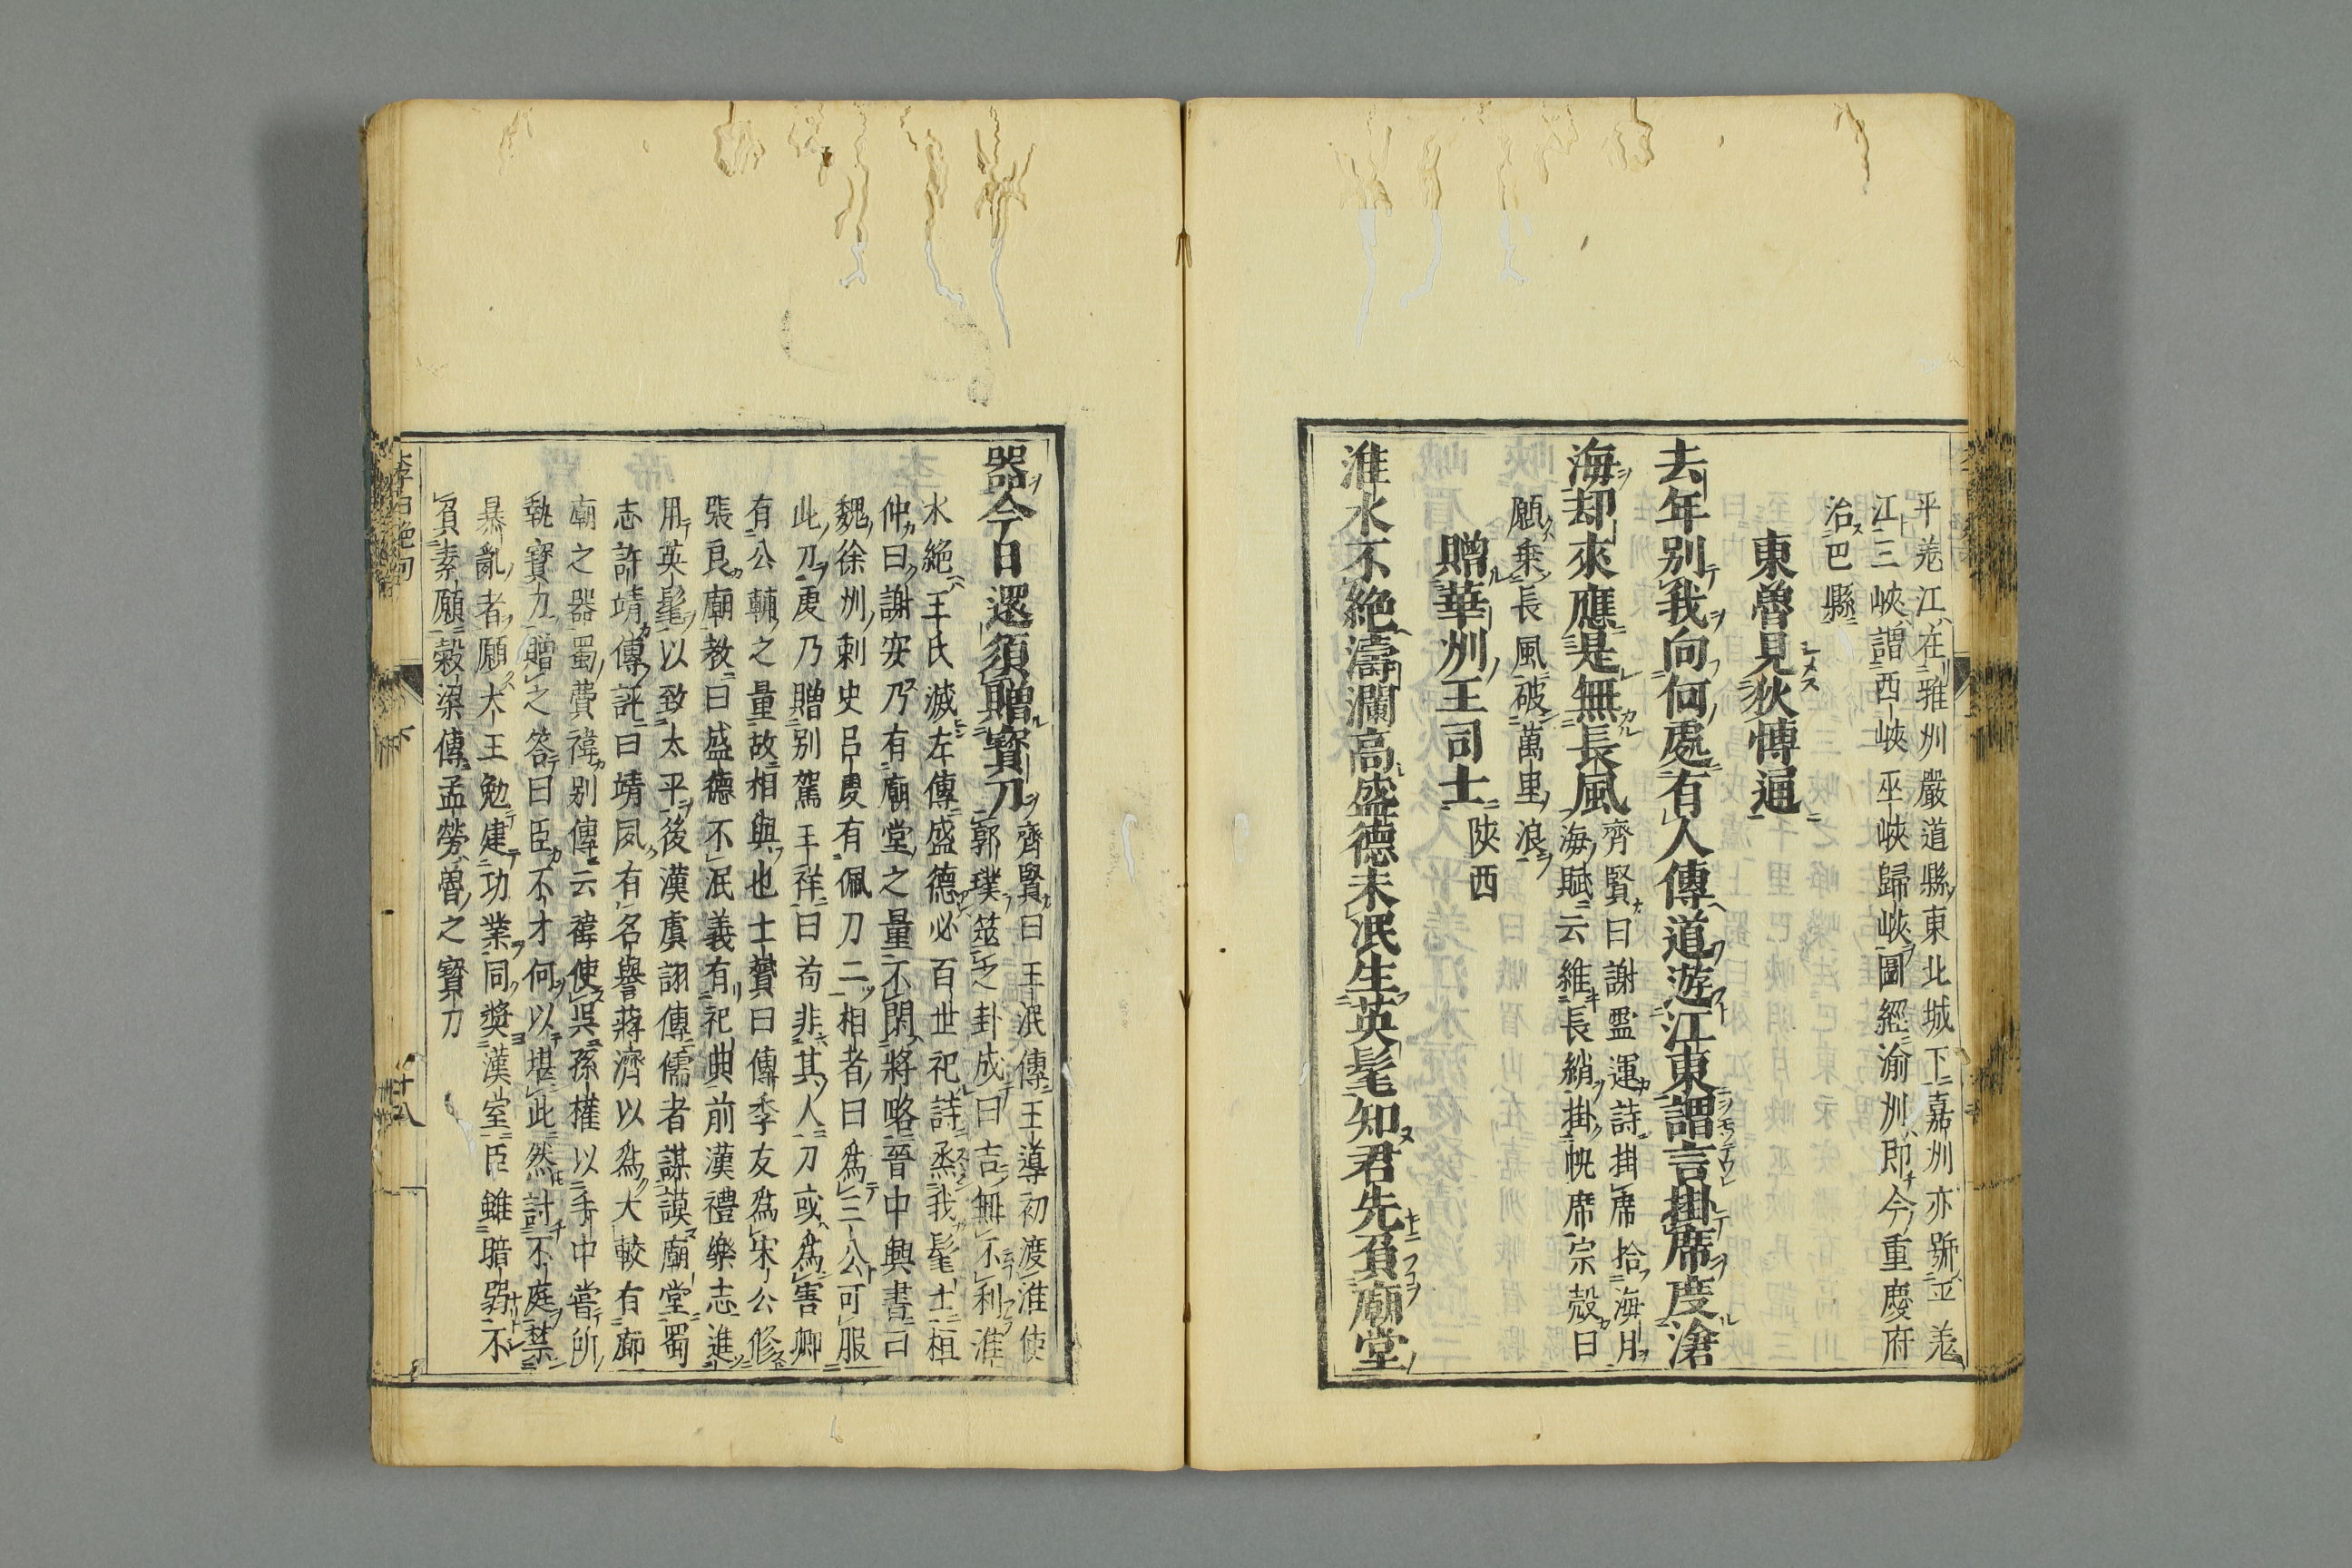 平羗江在雅州嚴道縣東北城下嘉州亦號平羗
江三峽謂西峽巫峽歸峽圖經渝州即今重慶府
治巴縣
東魯見狄愽通
去年别我向何處有人傳道遊江東謂言掛席度滄
海却來應是無長風齊賢曰謝靈運詩掛席拾海月
海賦云維長綃掛帆席宗慤曰
願乘長風破萬里浪
贈華州王司士陝西
淮水不絶濤瀾高盛德未泯生英髦知君先負廟堂
器今日還須贈寶刀齊賢曰王泯傳王導初渡淮使
郭璞筮之卦成曰吉無不利淮
水絶王氏滅左傳盛德必百世祀詩烝我髦士桓
仲曰謝安乃有廟堂之量不閑將略晉中興書曰
魏徐州刺史呂虔有佩刀二相者曰爲三公可服
此刀虔乃贈别駕王祥曰茍非其人刀或爲害卿
有公輔之量故相與也士贇曰傳季友爲宋公修
張良廟教曰盛德不泯義有祀典前漢禮樂志進
用英髦以致太平後漢虞詡傳儒者謀謨廟堂蜀
志許靖傳評曰靖夙有名譽蔣濟以爲大較有廊
廟之器蜀費禕别傳云禕使吳孫權以手中嘗所
執寶刀贈之答曰臣不才何以堪此然討不庭禁
暴亂者願大王勉建功業同奬漢室臣雖暗弱不
負素願穀梁傳孟勞魯之寶刀
李白絶句
下
十八